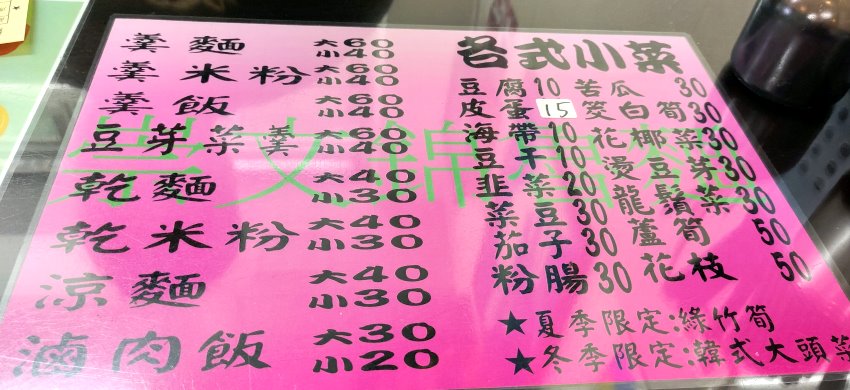 羹麵 大60 小40
羹米粉 大60 小40
羹飯 大60 小40
豆芽菜羹 大60 小40
乾麵 大40 小30
乾米粉 大40 小30
涼麵 大40 小30
滷肉飯 大30 小20
各式小菜
豆腐10 苦瓜 30
皮蛋15 筊白筍30
海帶10 花椰菜30
豆干10 燙豆芽30
韭菜20 龍鬚菜30
菜豆30 蘆筍 50
茄子30 花枝 50
粉腸30
★夏季限定:綠竹筍
★冬季限定:韓式大頭菜